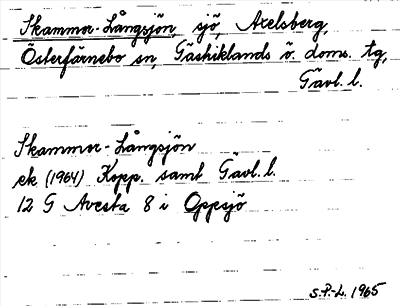 Skammor-Långsjön, sjö, Axelsberg,
Österfärnebo sn, Gästriklands ö. doms. tg,
Gävl. l.
Skammor-Långsjön
ek (1964) Kopp. samt Gävl. l.
12 G Avesta 8 i Oppsjö
S.P.-L. 1965